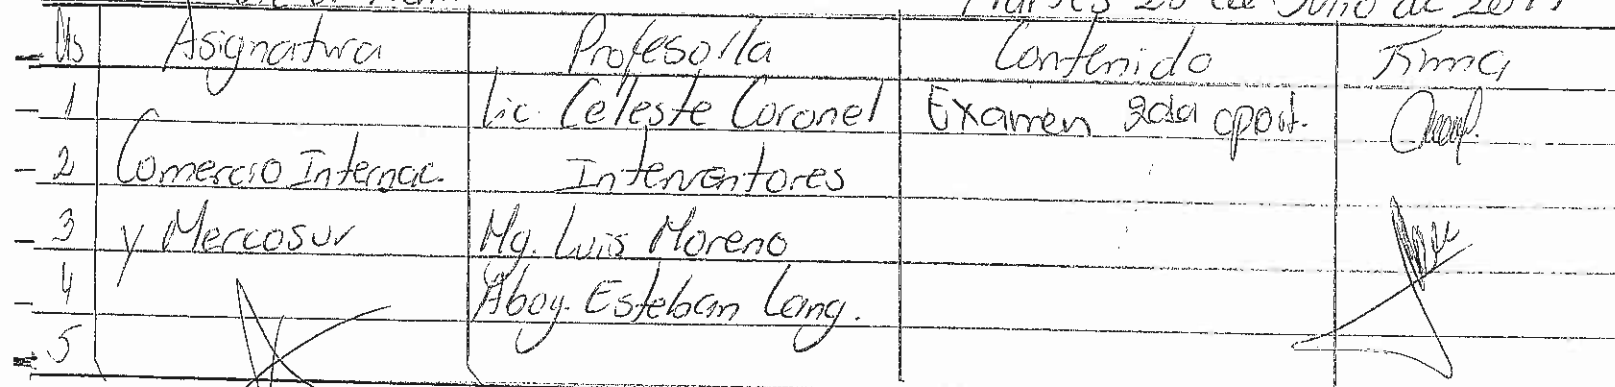 Martes 20 de Julio de
Hs Asignatura Profesor/la Contenido Firma
1 Lic. Celeste Coronel Examen 2da oport.
2 Comercio Internac. Interventores
3 y Mercosur Mg. Luis Moreno
4 Abog. Esteban Lang.
5